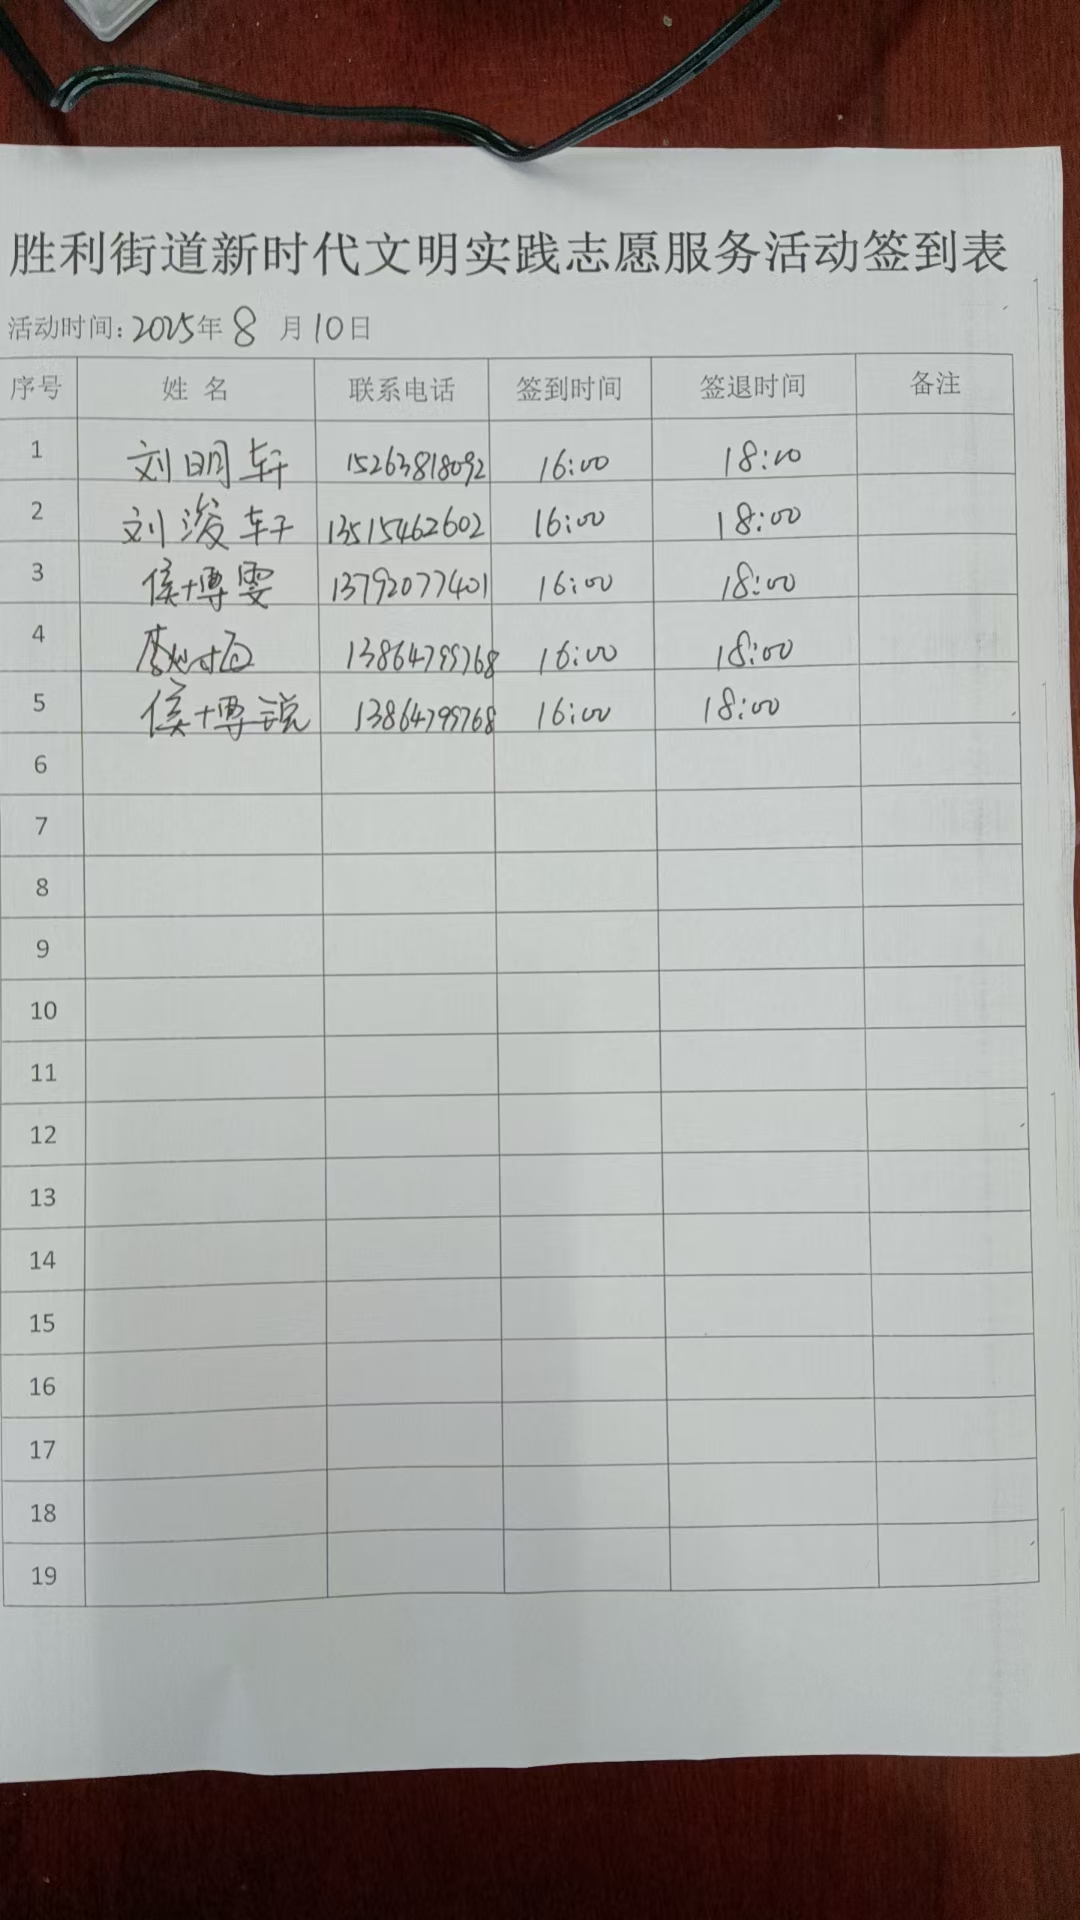 胜利街道新时代文明实践志愿服务活动签到表
活动时间：2025年 8 月10日
序号 姓 名 联系电话 签到时间 签退时间 备注
1 刘明轩 15263818092 16:00 18:00
2 刘浚轩 13515462602 16:00 18:00
3 侯博雯 13792077401 16:00 18:00
4 13864799768 16:00 18:00
5 侯博锐 13864799768 16:00 18:00
6
7
8
9
10
11
12
13
14
15
16
17
18
19